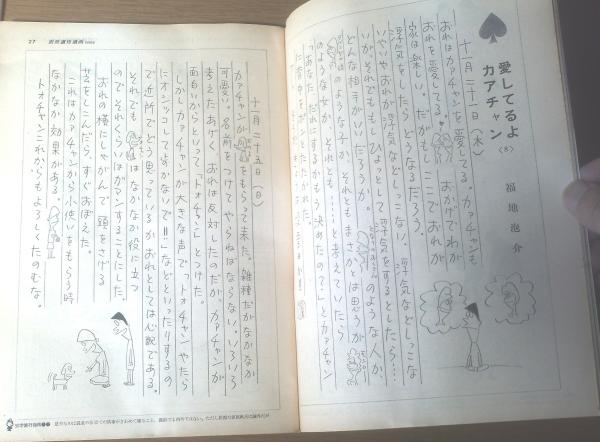 愛してるよ
カアチャン
(8)
福地泡介
十一月二十一日(木)
おれはカァチャンを愛してる。カァチャンも
おれを愛してる。おかげでわが
家は楽しい。だがもしここでおれが
浮気をしたらどうなるだろう。
いやいやおれが浮気などしっこない、浮気などしっこな
いが、それでももしひょっとして浮気をするとしたら……
どんな相手がいいだろうか。のような
のような子か、それともまさかとは思うが
のような女か、それとも……と考えていたら
「あなた、だれに浮気するかもう決めたの?」とカァチャン
に背中をポンとたたかれた。
27
十一月二十五日(日)
カァチャンがをもらって来た。雑種だがなかなか
可愛い。名前をつけてやらねばならない。いろいろ
考えたあげく、おれは反対したのだが、カァチャンが
面白いからといって「トオチャン」とつけた。
しかしカァチャンが大きな声で「トオチャンやたら
にオシッコして歩かないで!!」などといったりするの
で近所でどう思っているか、おれとしては心配である。
それでもはなかなか役に立つ
ので、それくらいはガマンすることにした。
おれの横にしゃがんで頭をさげる
芸をしこんだら、すぐおぼえた。
カァチャンから小使いをもらう時
なかなか効果がある。
トオチャン、これからもよろしくたのむな。